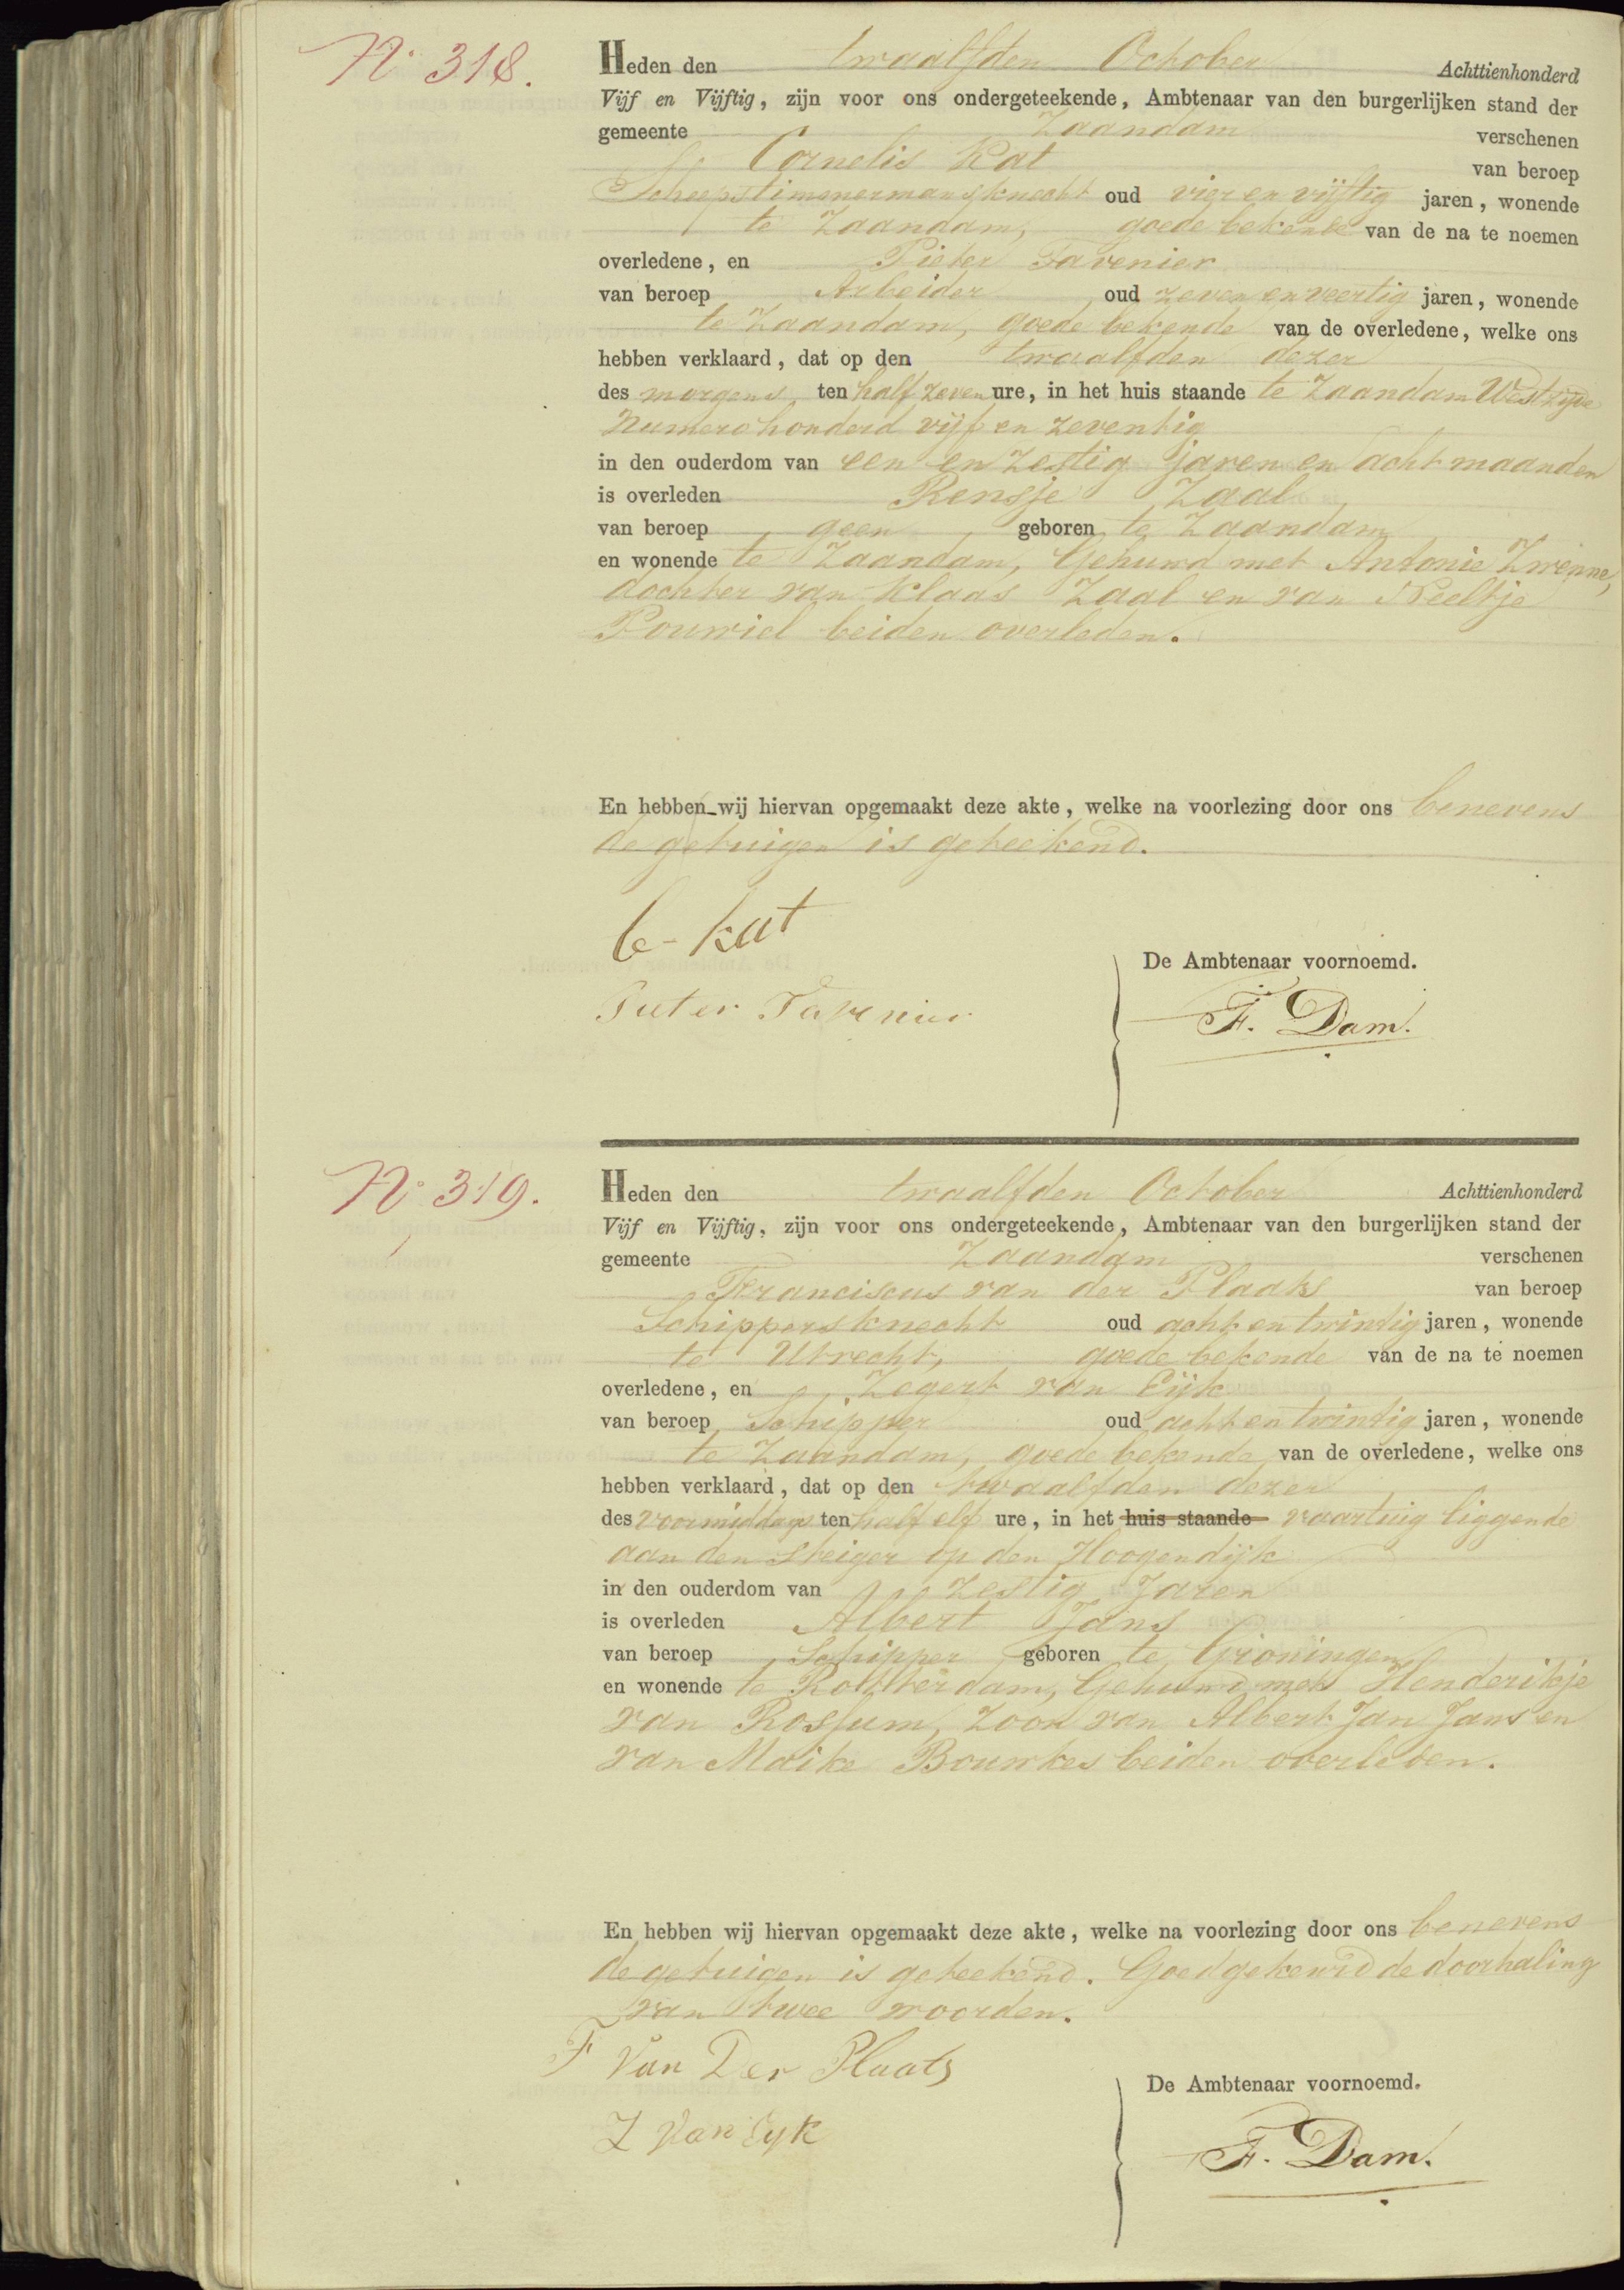 No 318.
Heden den twaalfden October Achttienhonderd
Vijf en Vijftig, zijn voor ons ondergeteekende, Ambtenaar van den burgerlijken stand der
gemeente Zaandam verschenen
Cornelis Kat van beroep
Scheepstimmermansknecht oud vier en vijftig jaren, wonende
te Zaandam, goede bekende van de na te noemen
overledene, en Pieter Tavenier
van beroep Arbeider oud zeven en veertig jaren, wonende
te Zaandam, goede bekende van de overledene, welke ons
hebben verklaard, dat op den twaalfden dezer
des morgens ten half zeven ure, in het huis staande te Zaandam Westzyde
Numero honderd vijf en zeventig
in den ouderdom van een en zestig jaren en acht maanden
is overleden Rensje Zaal
van beroep geen geboren te Zaandam
en wonende te Zaandam, Gehuwd met Antonie Zwenne,
dochter van Klaas Zaal en van Neeltje
Pouwiel beiden overleden.
En hebben wij hiervan opgemaakt deze akte, welke na voorlezing door ons benevens
de getuigen is geteekend.
C - Kat
De Ambtenaar voornoemd.
Pieter Tavenier
F. Dam.
No 319.
Heden den twaalfden October Achttienhonderd
Vijf en Vijftig, zijn voor ons ondergeteekende, Ambtenaar van den burgerlijken stand der
gemeente Zaandam verschenen
Franciscus van der Plaats van beroep
Schippersknecht oud acht en twintig jaren, wonende
te Utrecht, goede bekende van de na te noemen
overledene, en Zegert van Eijk
van beroep Schipper oud acht en twintig jaren, wonende
te Zaandam, goede bekende van de overledene, welke ons
hebben verklaard, dat op den twaalfden dezer
des voormiddags ten half elf ure, in het huis staande vaartuig liggende
aan den Steiger op den Hoogendijk
in den ouderdom van zestig Jaren
is overleden Albert Jans
van beroep Schipper geboren te Groningen
en wonende te Rotterdam, Gehuwd met Henderikje
van Rossum, zoon van Albert Jan Jans en
van Maike Bouwkes beiden overleden.
En hebben wij hiervan opgemaakt deze akte, welke na voorlezing door ons benevens
de getuigen is geteekend. Goedgekeurd de doorhaling
van twee woorden.
F Van Der Plaats
De Ambtenaar voornoemd.
Z Van Eyk
F. Dam.